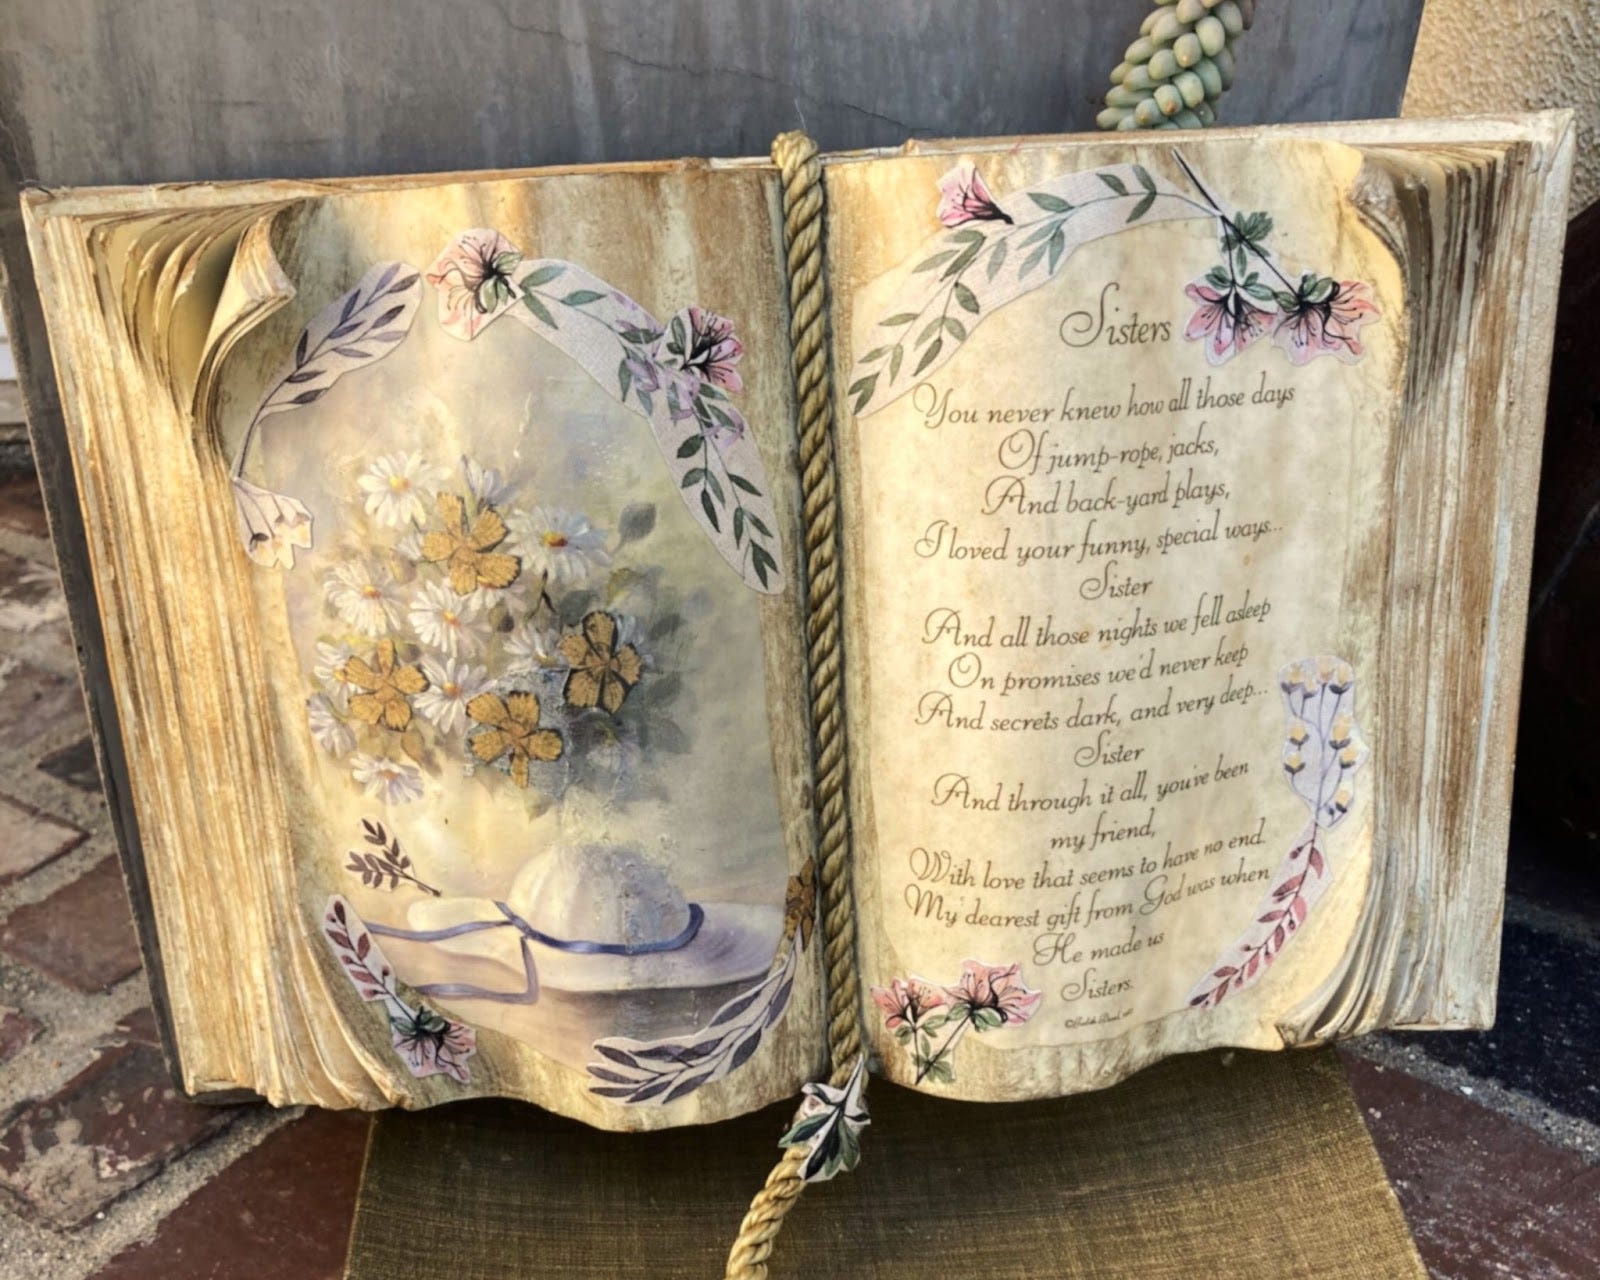 Sisters
You never knew how all those days
Of jump-rope, jacks,
And back-yard plays,
I loved your funny, special ways...
Sister
And all those nights we fell asleep
On promises we'd never keep
And secrets dark, and very deep...
Sister
And through it all, you've been
my friend,
With love that seems to have no end.
My dearest gift from God was when
He made us
Sisters.
©